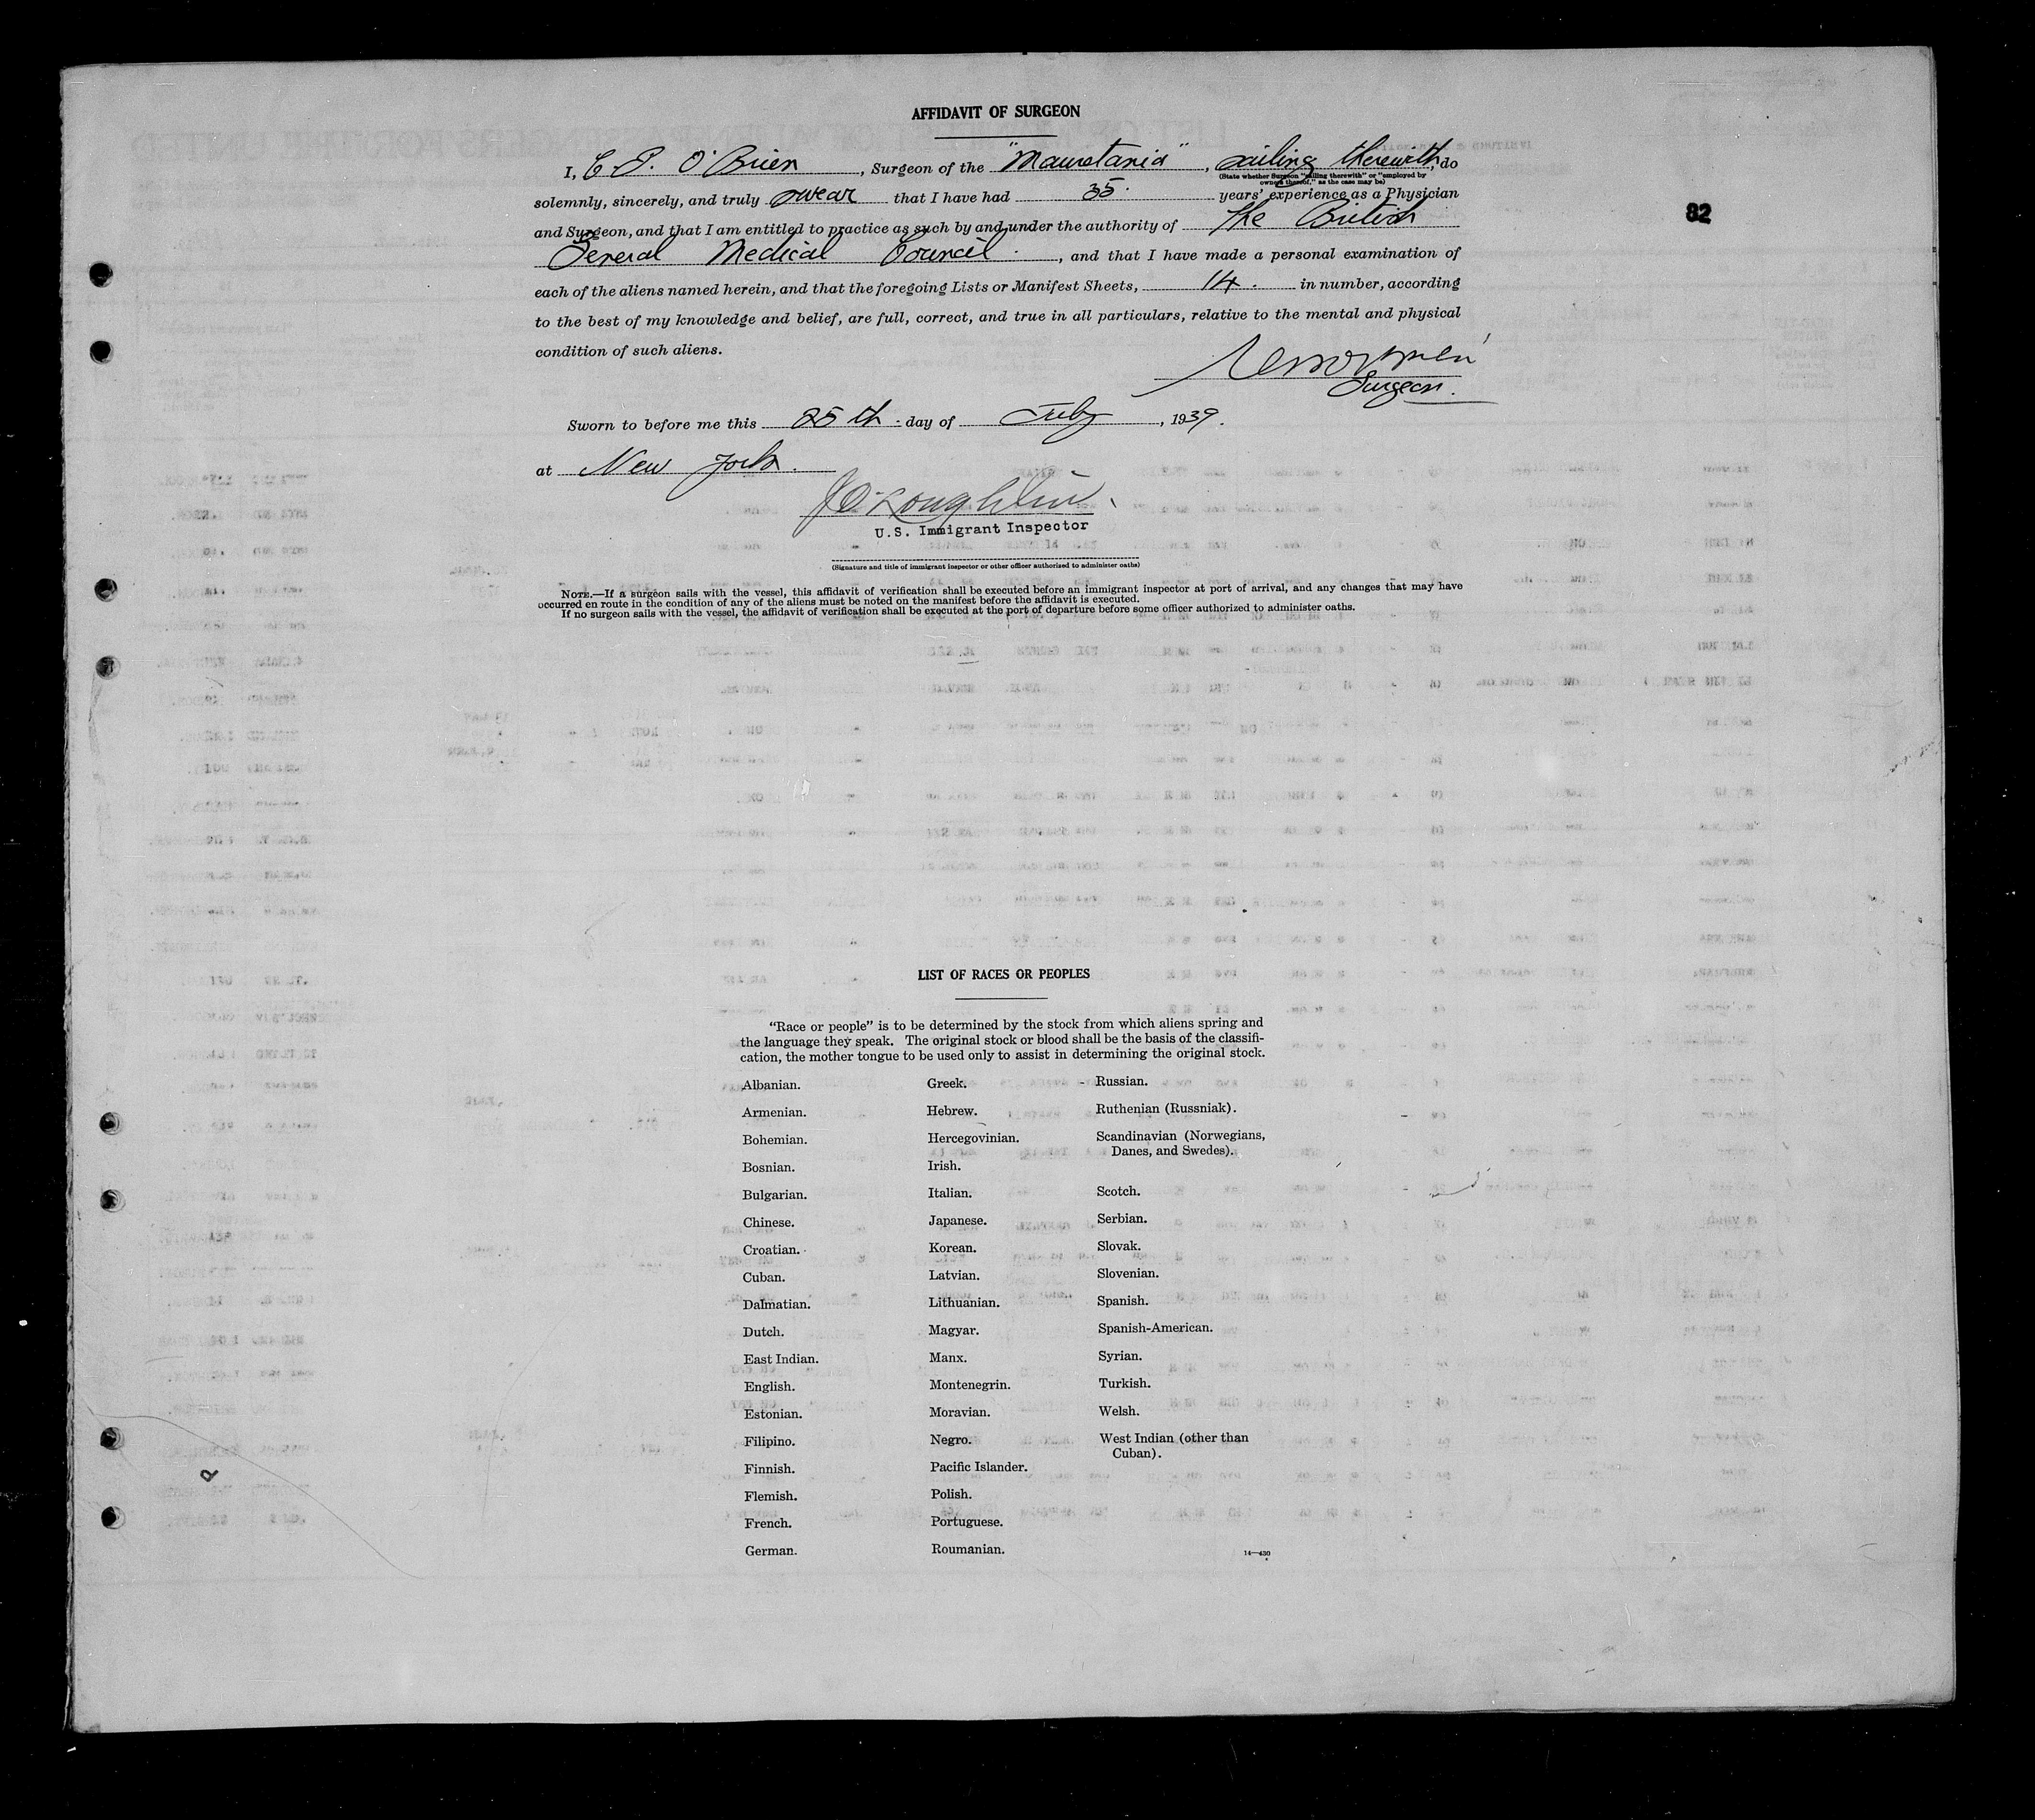 AFFIDAVIT OF SURGEON
I, O'Brien, Surgeon of the "Mauretania", sailing therewith, do
(State whether Surgeon "sailing therewith" or "employed by
owners thereof," as the case may be)
solemnly, sincerely, and truly swear that I have had 35. years' experience as a Physician
82
and Surgeon, and that I am entitled to practice as such by and under the authority of the British
General Medical Council, and that I have made a personal examination of
each of the aliens named herein, and that the foregoing Lists or Manifest Sheets, 14. in number, according
to the best of my knowledge and belief, are full, correct, and true in all particulars, relative to the mental and physical
condition of such aliens.
Surgeon.
Sworn to before me this 25th day of July, 1939.
at New York.
U.S. Immigrant Inspector
(Signature and title of immigrant inspector or other officer authorized to administer oaths)
NOTE.—If a surgeon sails with the vessel, this affidavit of verification shall be executed before an immigrant inspector at port of arrival, and any changes that may have
occurred en route in the condition of any of the aliens must be noted on the manifest before the affidavit is executed.
If no surgeon sails with the vessel, the affidavit of verification shall be executed at the port of departure before some officer authorized to administer oaths.
LIST OF RACES OR PEOPLES
"Race or people" is to be determined by the stock from which aliens spring and
the language they speak. The original stock or blood shall be the basis of the classifi-
cation, the mother tongue to be used only to assist in determining the original stock.
Albanian.
Armenian.
Bohemian.
Bosnian.
Bulgarian.
Chinese.
Croatian.
Cuban.
Dalmatian.
Dutch.
East Indian.
English.
Estonian.
Filipino.
Finnish.
Flemish.
French.
German.
Greek.
Hebrew.
Hercegovinian.
Irish.
Italian.
Japanese.
Korean.
Latvian.
Lithuanian.
Magyar.
Manx.
Montenegrin.
Moravian.
Negro.
Pacific Islander.
Polish.
Portuguese.
Roumanian.
Russian.
Ruthenian (Russniak).
Scandinavian (Norwegians,
Danes, and Swedes).
Scotch.
Serbian.
Slovak.
Slovenian.
Spanish.
Spanish-American.
Syrian.
Turkish.
Welsh.
West Indian (other than
Cuban).
14—430